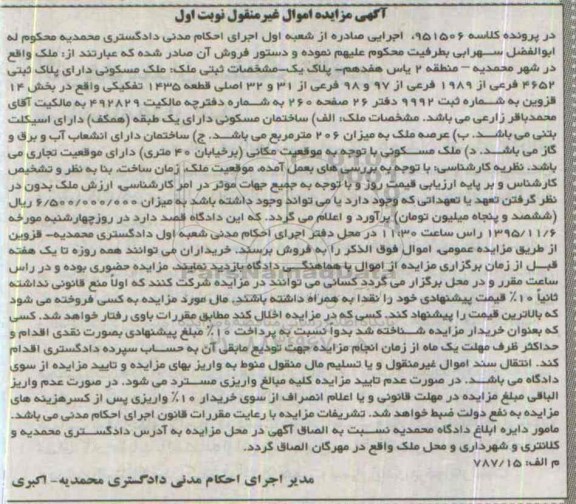 آگهی مزایده اموال غیرمنقول نوبت اول
در پرونده کلاسه ۹۵۱۵۰۶، اجرایی صادره از شعبه اول اجرای احکام مدنی دادگستری محمدیه محکوم له
ابوالفضل سهرابی بطرفیت محکوم علیهم نموده و دستور فروش آن صادر شده که عبارتند از: ملک واقع
در شهر محمدیه – منطقه ۲ یاس هفدهم- پلاک یک-مشخصات ثبتی ملک: ملک مسکونی دارای پلاک ثبتی
۴۶۵۲ فرعی از ۱۹۸۹ فرعی از ۹۷ و ۹۸ فرعی از ۳۱ و ۳۲ اصلی قطعه ۱۴۳۵ تفکیکی واقع در بخش ۱۴
قزوین به شماره ثبت ۹۹۹۲ دفتر ۲۶ صفحه ۲۶۰ به شماره دفترچه مالکیت ۴۹۲۸۲۹ به مالکیت آقای
محمدباقر زارعی می باشد. مشخصات ملک: الف) ساختمان مسکونی دارای یک طبقه (همکف) دارای اسکلت
بتنی می باشد. ب) عرصه ملک به میزان ۲۰۶ مترمربع می باشد. ج) ساختمان دارای انشعاب آب و برق و
گاز می باشد. د) ملک مسکونی با توجه به موقعیت مکانی (برخیابان ۴۰ متری) دارای موقعیت تجاری می
باشد. نظریه کارشناسی: با توجه به بررسی های بعمل آمده، موقعیت ملک، زمان ساخت، بنا به نظر و تشخیص
کارشناس و بر پایه ارزیابی قیمت روز و با توجه به جمیع جهات موثر در امر کارشناسی، ارزش ملک بدون در
نظر گرفتن تعهد یا تعهداتی که وجود دارد یا می تواند وجود داشته باشد به میزان ۶/۵۰۰/۰۰۰/۰۰۰ ریال
(ششصد و پنجاه میلیون تومان) برآورد و اعلام می گردد. که این دادگاه قصد دارد در روز چهارشنبه مورخه
۱۳۹۵/۱۱/۶ راس ساعت ۱۱:۳۰ در محل دفتر اجرای احکام مدنی شعبه اول دادگستری محمدیه- قزوین
از طریق مزایده عمومی، اموال فوق الذکر را به فروش برسند. خریداران می توانند همه روزه تا یک هفته
قبل از زمان برگزاری مزایده از اموال با هماهنگی دادگاه بازدید نمایند. مزایده حضوری بوده و در راس
ساعت مقرر و در محل برگزار می گردد کسانی می توانند در مزایده شرکت کنند که اولاً منع قانونی نداشته
ثانیاً ۱۰٪ قیمت پیشنهادی خود را نقداً به همراه داشته باشند. مال مورد مزایده به کسی فروخته می شود
که بالاترین قیمت را پیشنهاد کند، کسی که در مزایده اخلال کند مطابق مقررات باوی رفتار خواهد شد. کسی
که بعنوان خریدار مزایده شناخته شد بدواً نسبت به پرداخت ۱۰٪ مبلغ پیشنهادی بصورت نقدی اقدام و
حداکثر ظرف مهلت یک ماه از زمان انجام مزایده جهت تودیع مابقی آن به حساب سپرده دادگستری اقدام
کند. انتقال سند اموال غیرمنقول و یا تسلیم مال منقول منوط به واریز بهای مزایده و تایید مزایده از سوی
دادگاه می باشد. در صورت عدم تایید مزایده کلیه مبالغ واریزی مسترد می شود. در صورت عدم واریز
الباقی مبلغ مزایده در مهلت قانونی و یا اعلام انصراف از سوی خریدار ۱۰٪ واریزی پس از کسرهزینه های
مزایده به نفع دولت ضبط خواهد شد. تشریفات مزایده با رعایت مقررات قانون اجرای احکام مدنی می باشد.
مامور دایره ابلاغ دادگاه محمدیه نسبت به الصاق آگهی در محل مزایده به آدرس دادگستری محمدیه و
کلانتری و شهرداری و محل ملک واقع در مهرگان الصاق گردد.
م الف: ۷۸۷/۱۵
مدیر اجرای احکام مدنی دادگستری محمدیه- اکبری